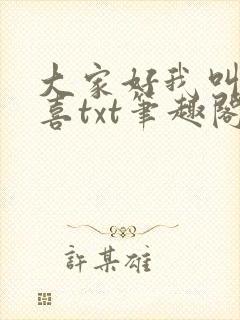 大家好我叫
喜txt筆趣閣
許某雄